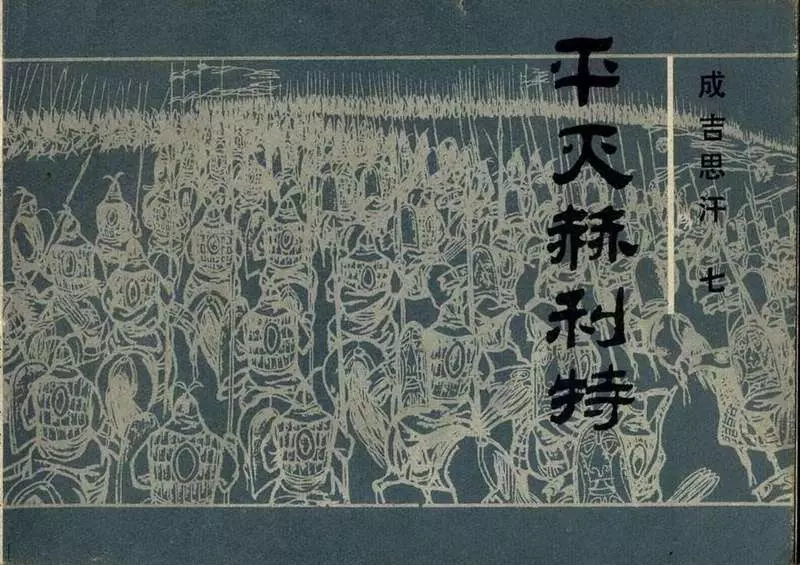 平灭赫利特
成吉思汗 七